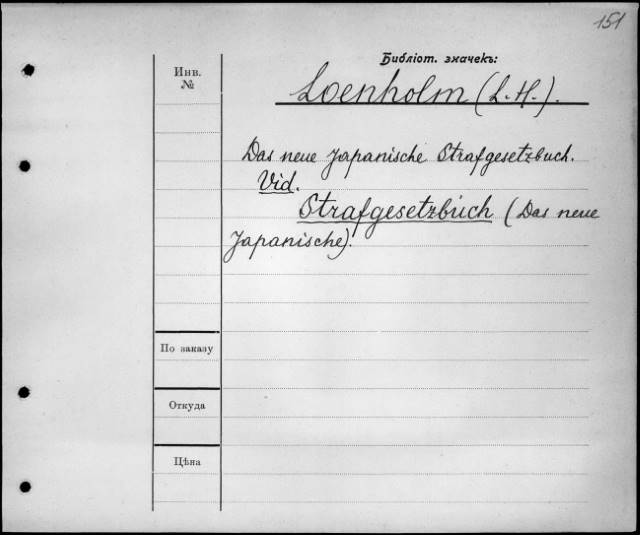 151
Библіот. значекъ:
Инв.
№
Loenholm (L. H.).
Das neue Japanische Strafgesetzbuch.
Vid.
Strafgesetzbuch (Das neue
Japanische).
По заказу
Откуда
Цѣна